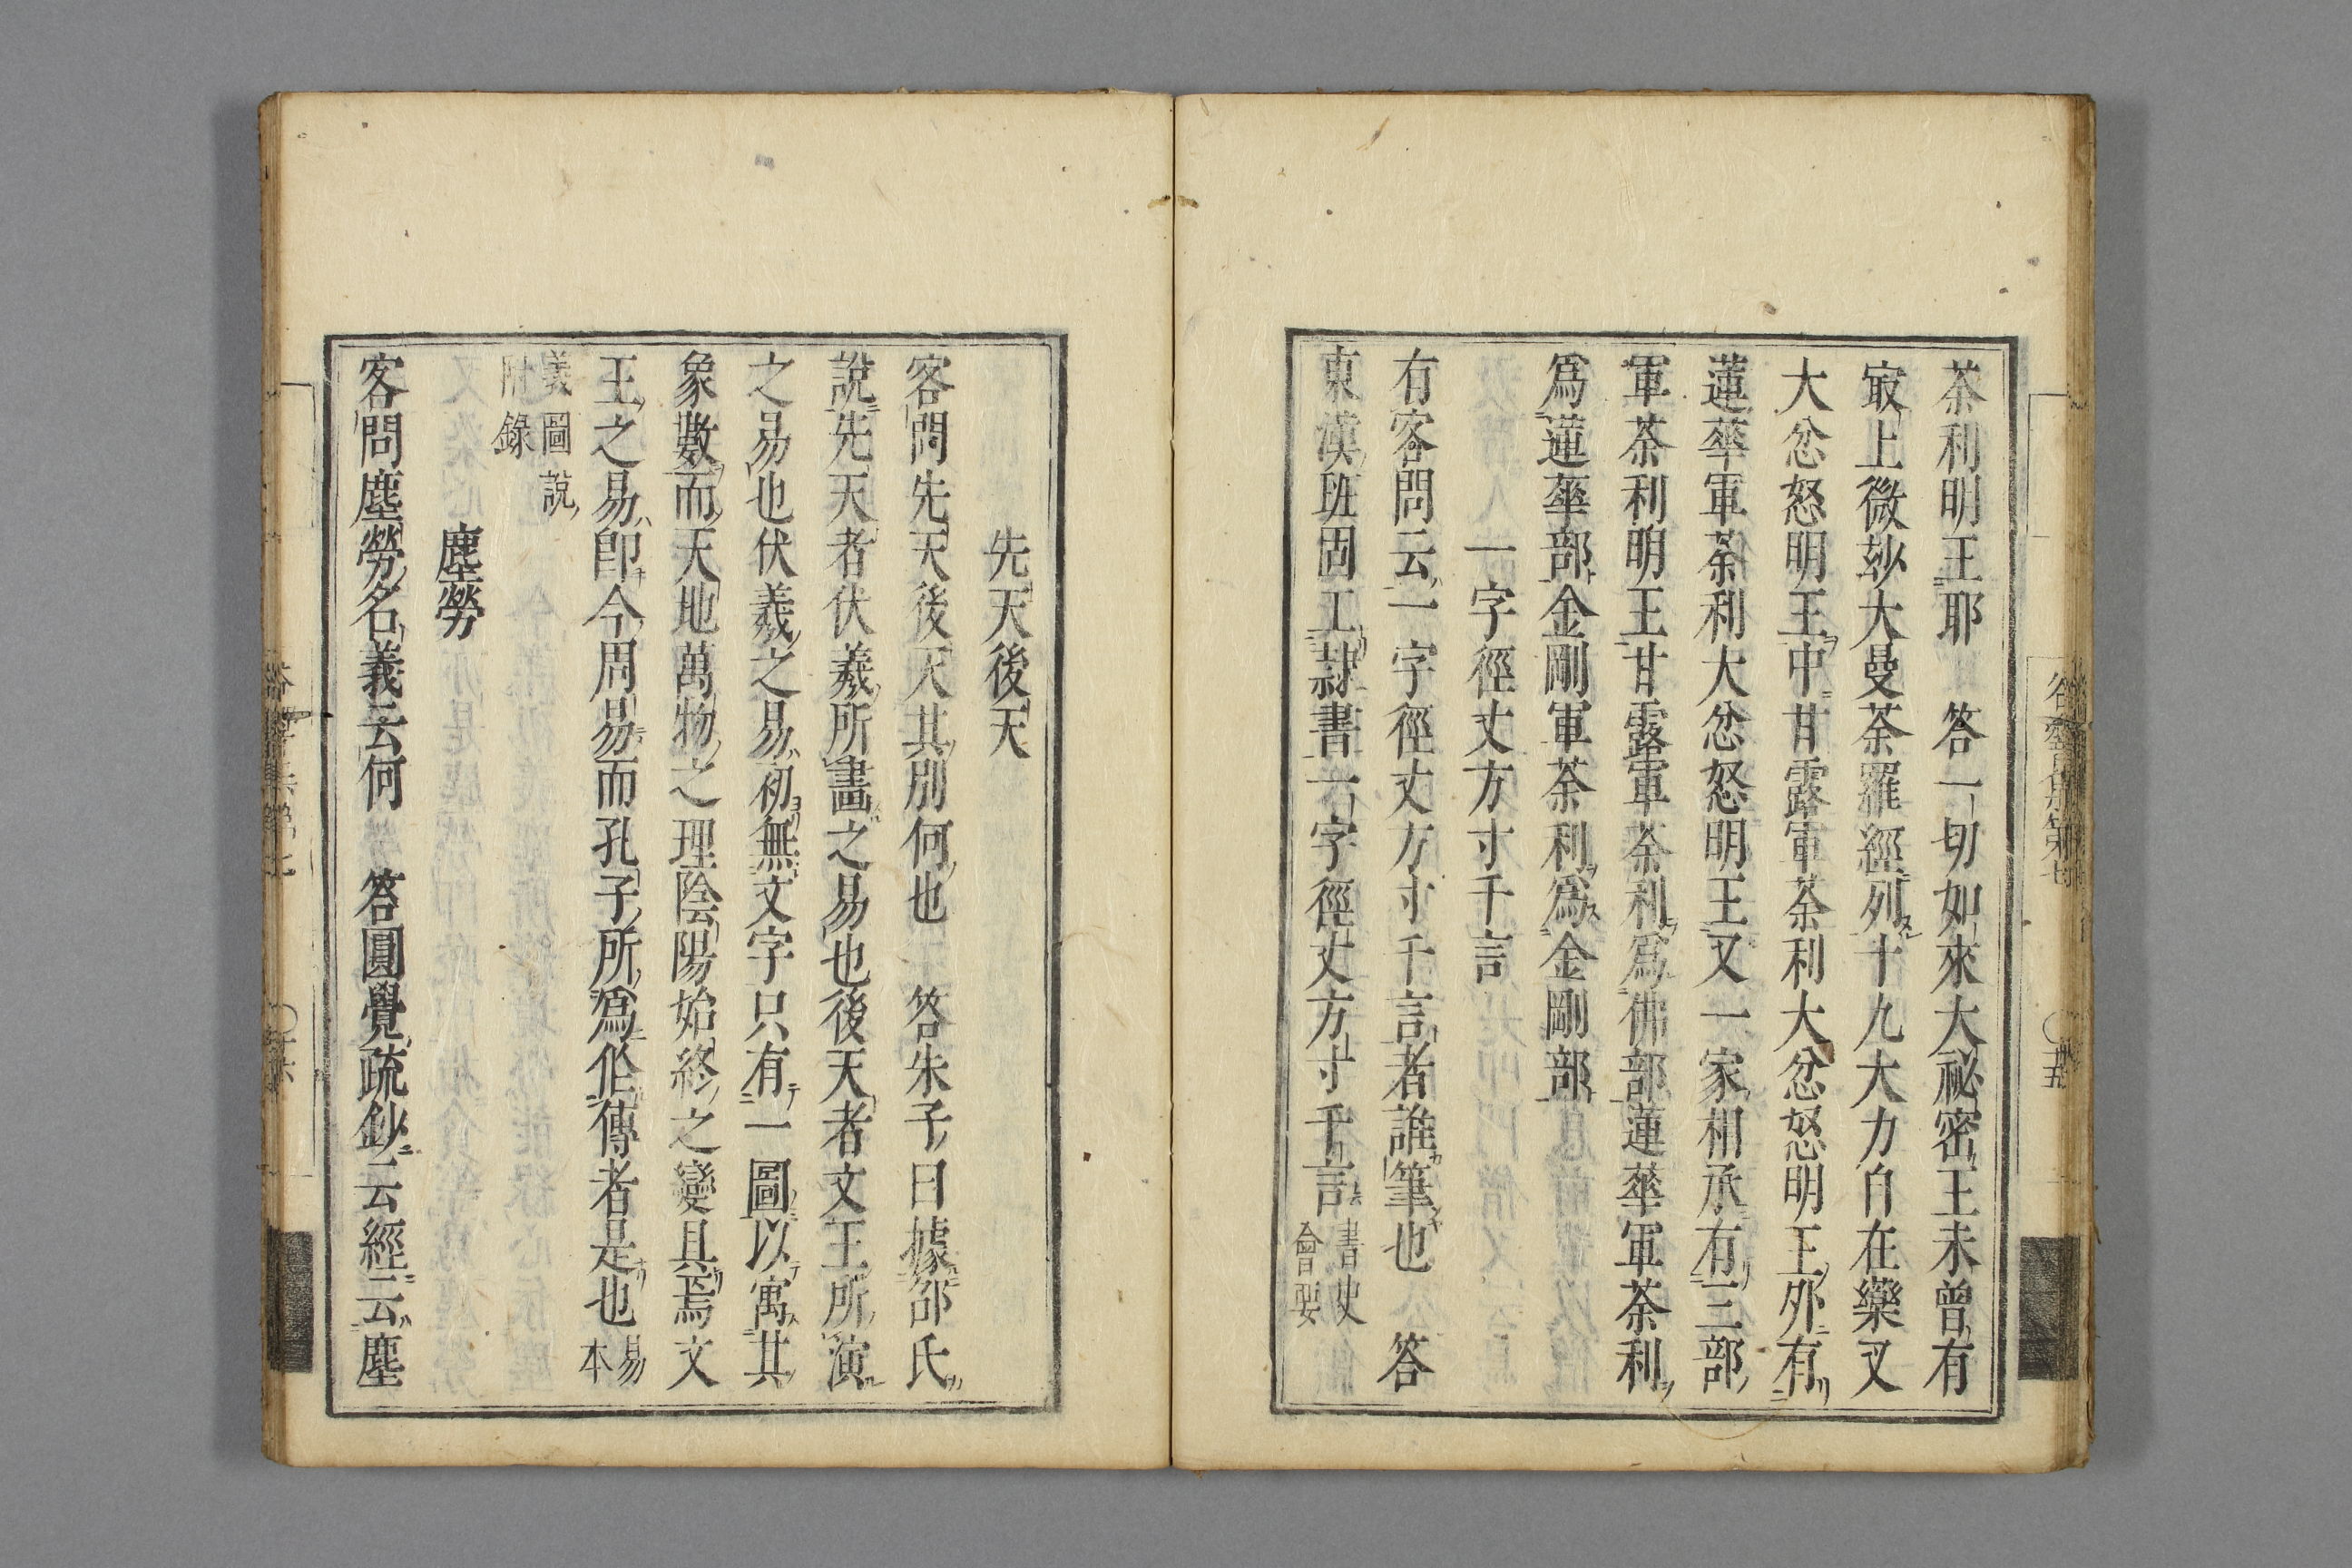 茶利明王耶　答一切如來大祕密王未曾有
㝡上微玅大曼荼羅經列十九大力自在藥叉
大忿怒明王中甘露軍荼利大忿怒明王外有
蓮華軍荼利大忿怒明王又一家相承有三部
軍荼利明王甘露軍荼利爲佛部蓮華軍荼利
爲蓮華部金剛軍荼利爲金剛部
一字徑丈方寸千言
有客問云一字徑丈方寸千言者誰筆也　答
東漢班固工隷書一字徑丈方寸千言書史
會要
先天後天
客問先天後天其別何也　答朱子曰據邵氏
說先天者伏羲所畫之易也後天者文王所演
之易也伏羲之易初無文字只有一圖以寓其
象數而天地萬物之理陰陽始終之變具焉文
王之易卽今周易而孔子所爲作傳者是也易
本
義圖說
附錄
塵勞
客問塵勞名義云何　答圓覺疏鈔云經云塵